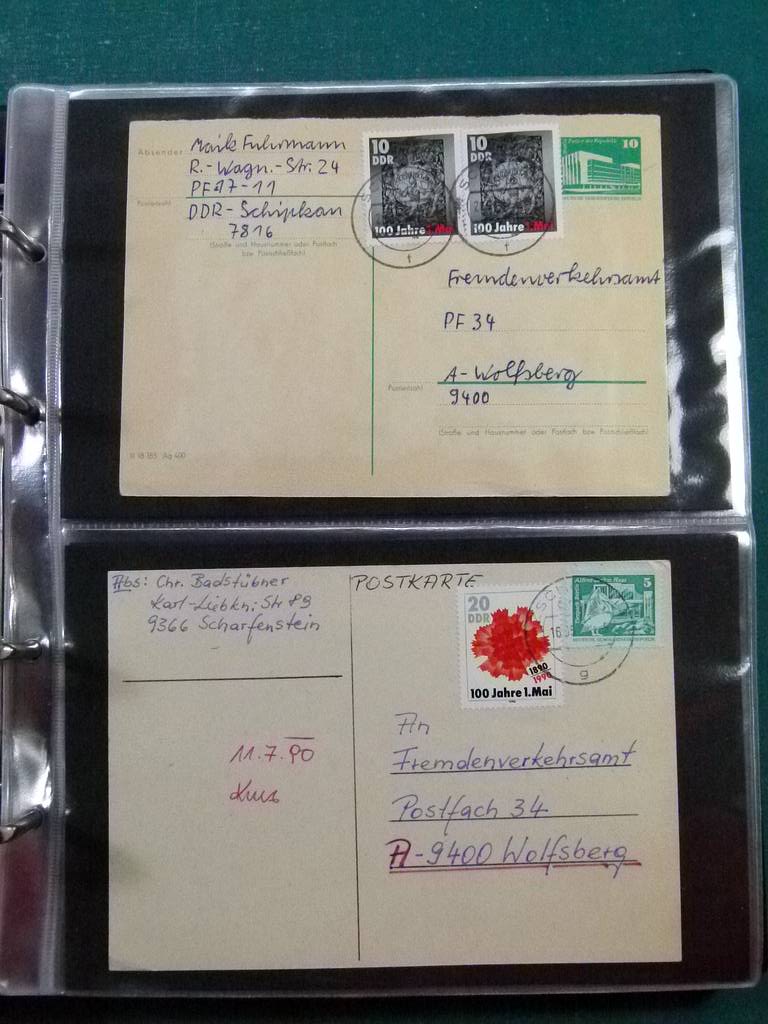 Absender:
Maik Fuhrmann
R.-Wagn.-Str. 24
PF 17-11
Postleitzahl
DDR-Schipkau
7816
(Straße und Hausnummer oder Postfach
bzw. Postschließfach)
10
DDR
100 Jahre 1.Mai
10
DDR
100 Jahre 1.Mai
Palast der Republik
10
DEUTSCHE DEMOKRATISCHE REPUBLIK
f
f
Fremdenverkehrsamt
PF 34
A-Wolfsberg
Postleitzahl
9400
(Straße und Hausnummer oder Postfach bzw. Postschließfach)
III 18 185 Ag 400
Abs: Chr. Badstübner
Karl-Liebkn. Str 89
9366 Scharfenstein
POSTKARTE
20
DDR
1890
1990
100 Jahre 1.Mai
5
g
11.7.90
An
Fremdenverkehrsamt
Postfach 34
A-9400 Wolfsberg